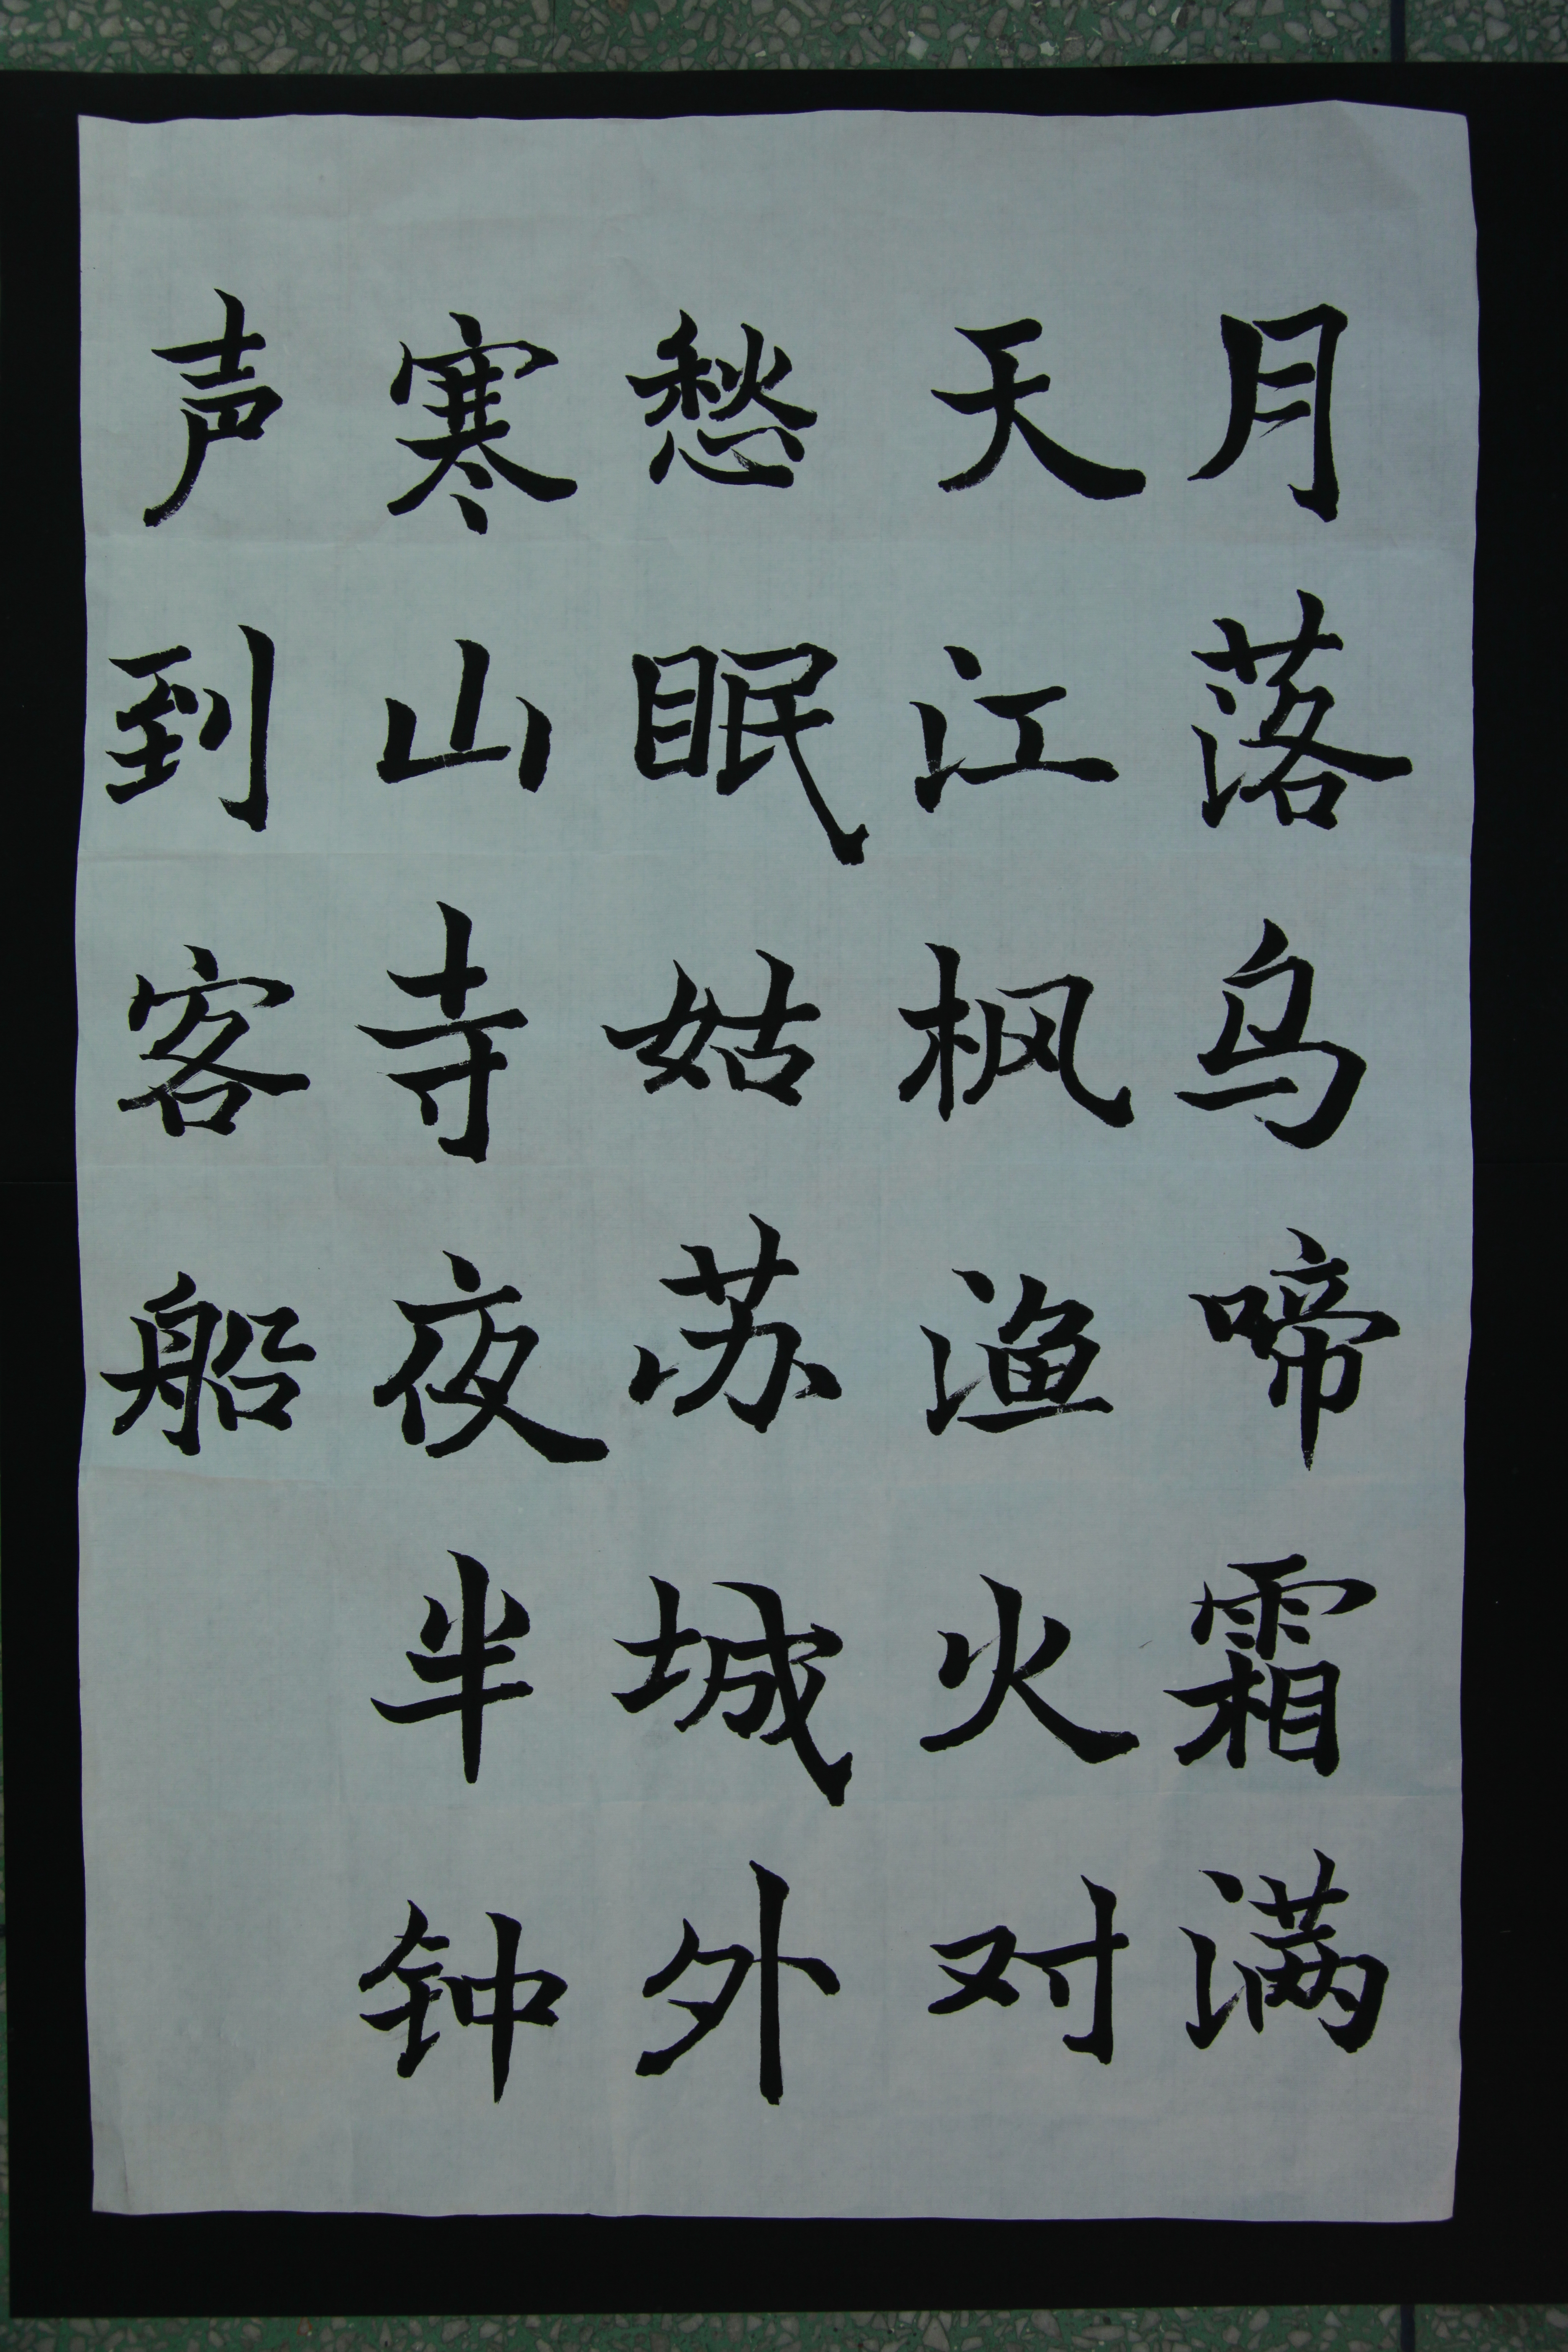 月落乌啼霜满
天江枫渔火对
愁眠姑苏城外
寒山寺夜半钟
声到客船